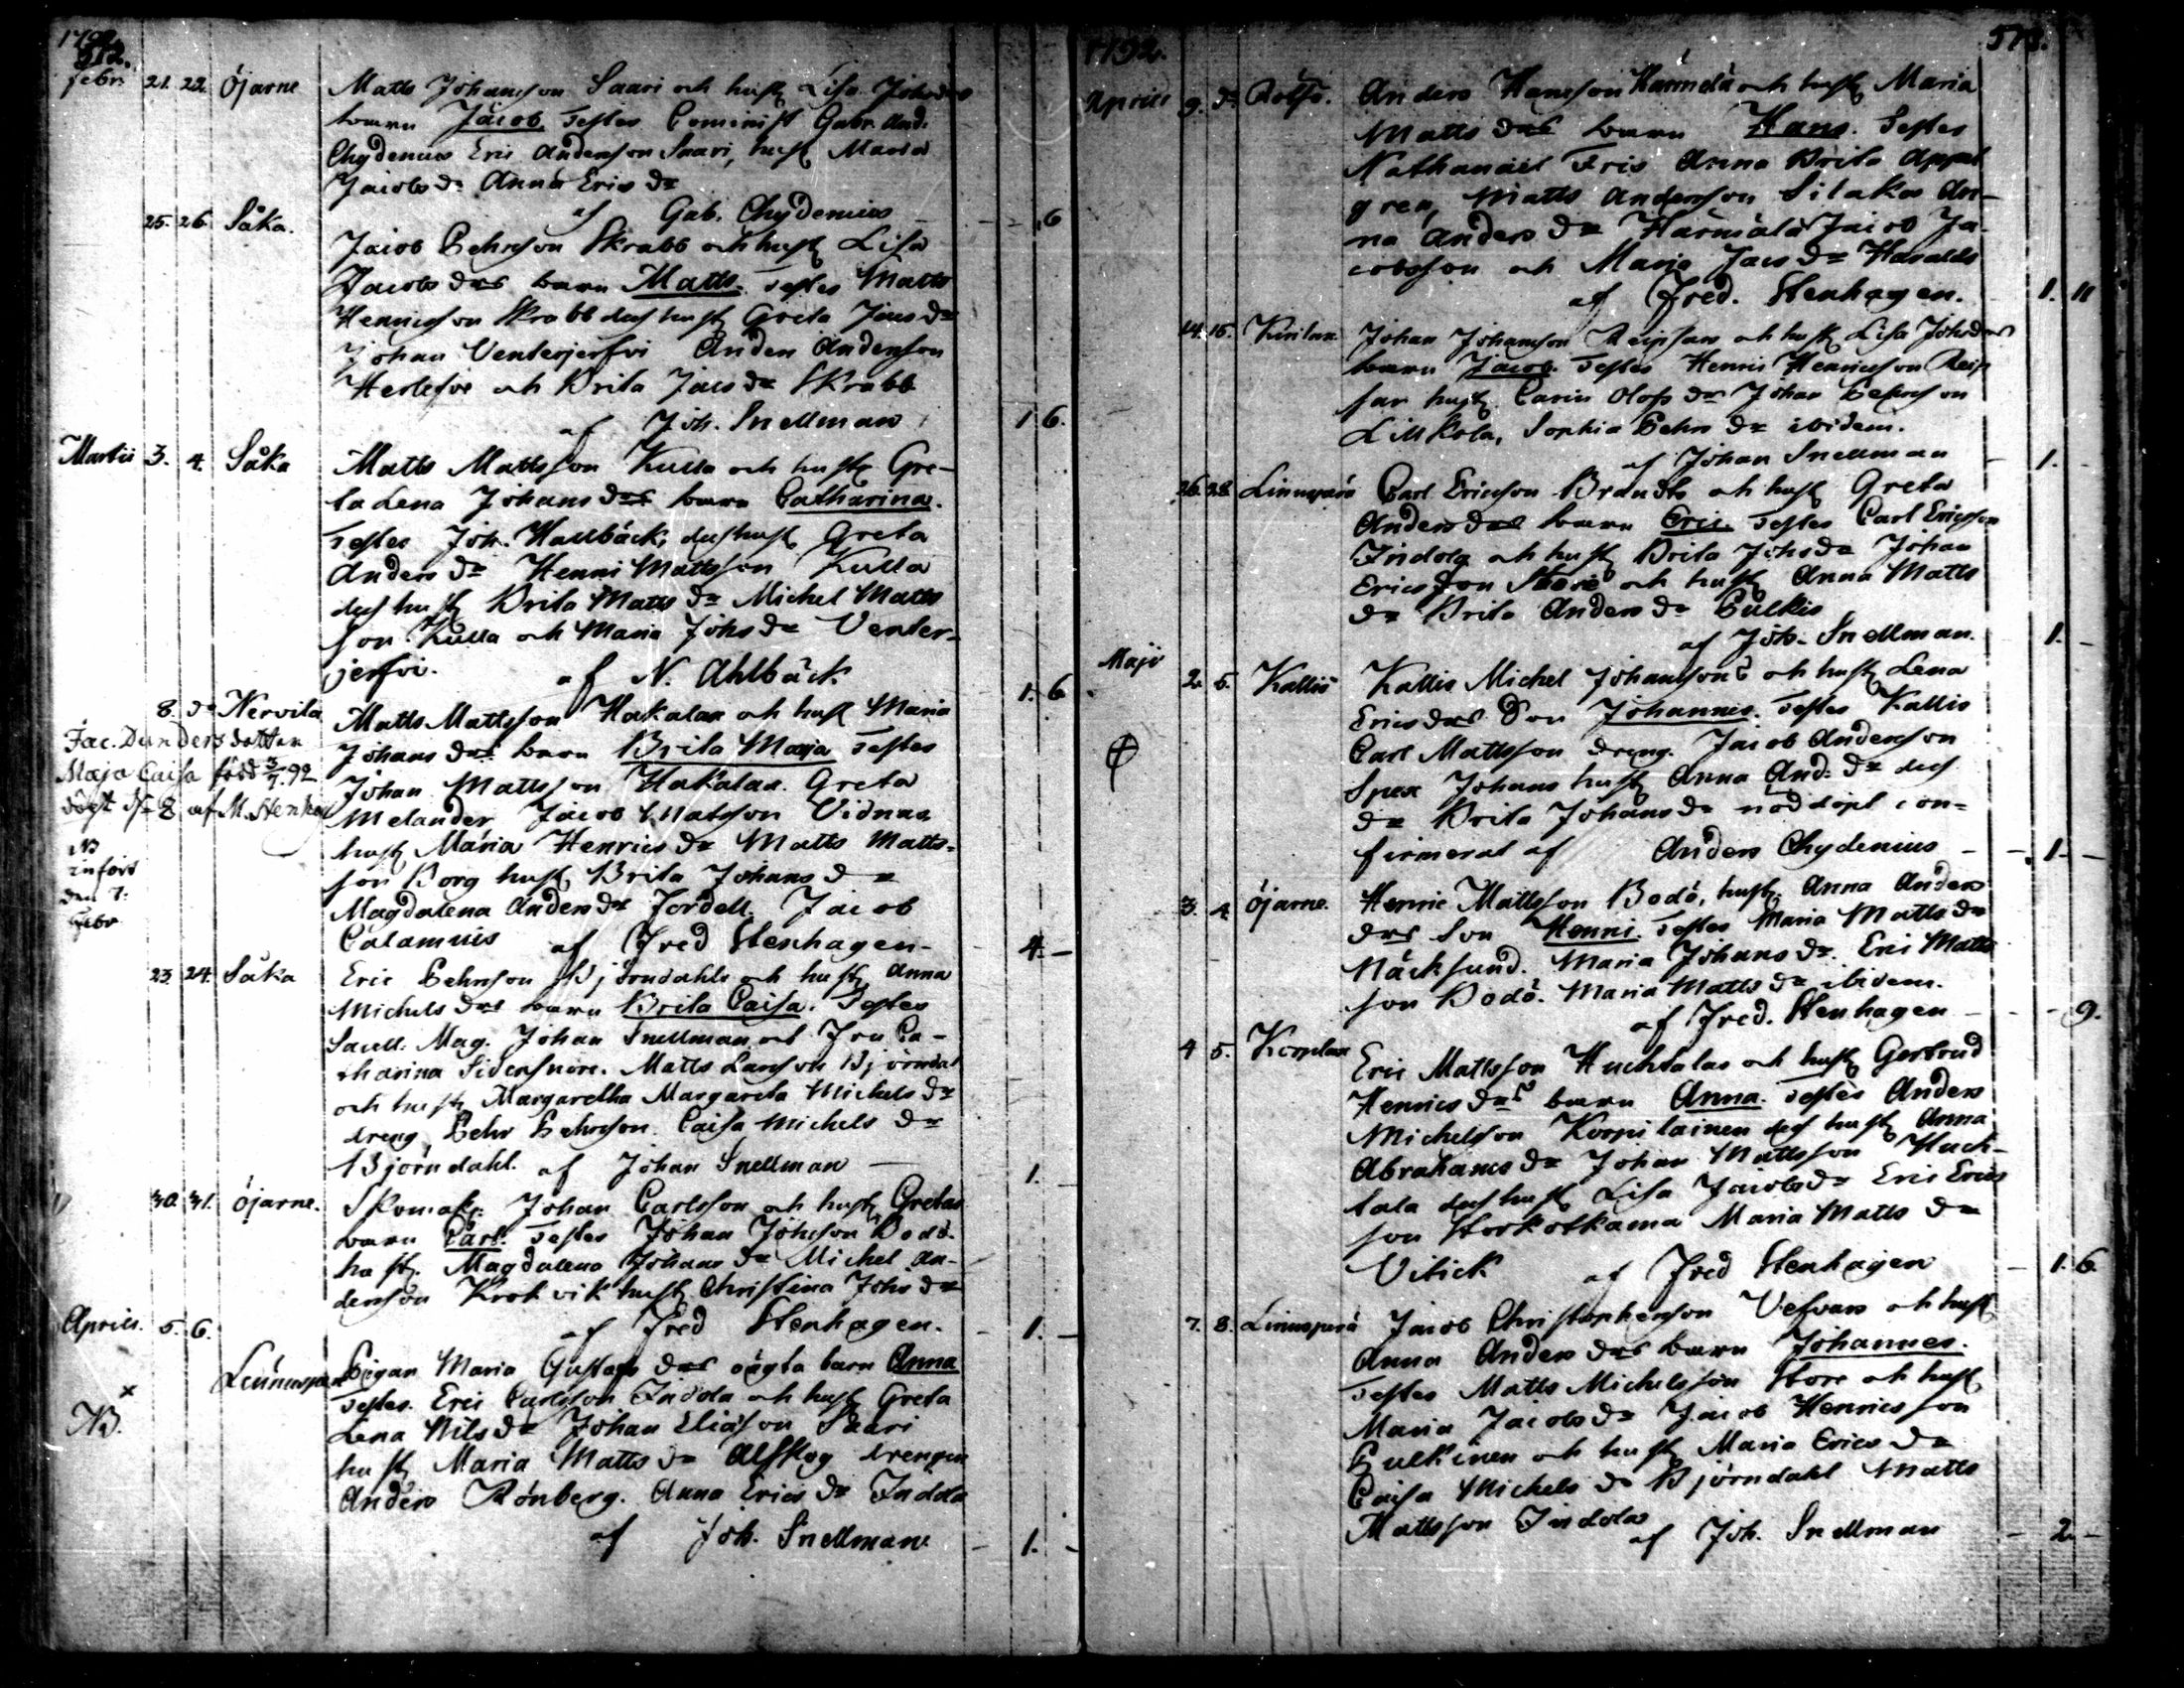 1792.
512.
Febr. 21. 22. Öjarne Matts Johansson Saari och hust. Lisa Johsdrs
barn Jacob. Testes Cominist Gabr. And.
Chydenius Eric Andersson Saari, hust. Maria
Jacobs dr Anna Erics dr
af Gab. Chydenius - - 6
25. 26. Såka. Jacob Pehrsson Skrabb och hust. Lisa
Jacobs drs barn Matts. Testes Matts
Henricsson Skrabb dess hust. Greta Jacs dr
Johan Venterjerfvi Anders Andersson
Herlefvi och Brita Jacs dr Skrabb
af Joh. Snellman 1. 6.
Martii 3. 4. Såka Matts Mattsson Kulla och hust. Gre-
ta Lena Johans drs barn Catharina.
Testes Joh. Hallbäck, dess hust. Greta
Anders dr Henric Mattsson Kulla
dess hust. Brita Matts dr Michel Matts
son Kulla och Maria Johs dr Venter-
jerfvi. af N. Ahlbäck 1. 6
8. do Nervila Matts Mattsson Hakalax och hust. Maria
Johans drs barn Brita Maja Testes
Johan Mattsson Hakalax. Greta
Melander Jacob Matsson Vidnäs
hust. Maria Henrics dr Matts Matts-
son Borg hust. Brita Johans dr
Magdalena Anders dr Jordell. Jacob
Calamnius af Fred Stenhagen - 4. -
Jac. Dunders dotter
Maja Caisa född 3/7. 92
döpt d. 8 af M. Stenhag
NB
införd
den 7:
Febr
23. 24. Såka Eric Pehrsson Björndahls och hust. Anna
Michels drs barn Brita Caisa. Testes
Sacell. Mag. Johan Snellman och Fru Ca-
tharina Sidensnöre. Matts Larsson Björndal
och hust. Margaretha Margareta Michels dr
dreng Pehr Pehrsson. Caisa Michels dr
Björndahl. af Johan Snellman - 1.
30. 31. Öjarne. Skomak. Johan Carlsson och hust. Gretas
barn Carl. Testes Johan Johnsson Bodö
hust. Magdalena Johans dr Michel An-
dersson Krokvik hust. Christina Johs dr
af Fred Stenhagen. - 1. -
Aprilis. 5. 6.
Linnuspera Pigan Maria Gustafs drs oägta barn Anna
Testes. Eric Carlsson Indola och hust. Greta
Lena Nils dr Johan Eliasson Saari
hust. Maria Matts dr Alskog drengen
Anders Rönberg. Anna Erics dr Indola
af Joh. Snellman - 1. -
x
NB.
1792. 513.
Aprilis 9. do Rolfö. Anders Hansson Härmälä och hust. Maria
Matts drs barn Hans. Testes
Nathanael Fris Anna Brita Appel
gren, Matts Andersson Silakas An-
na Anders dr Härmälä Jacob Ja-
cobsson och Maria Jacs dr Haralds
af Fred. Stenhagen. - 1. 11
14. 15. Johan Johansson Reipsar och hust. Lisa Johsdrs
barn Jacob. Testes Henric Henricsson Reip
sar hust. Carin Olofs dr Johan Pehrsson
Lillkola, Sophia Pehrs dr ibidem.
af Johan Snellman - 1. -
26. 28. Linnuspera Carl Ericsson Brandts och hust. Greta
Anders drs barn Eric. Testes Carl Ericsson
Indola och hust. Brita Johs dr Johan
Ericsson Store och hust. Anna Matts
dr Brita Anders dr Pulkis
af Joh. Snellman. 1. -
Maji 2. 5. Kallis Kallis Michel Johanssons och hust. Lena
Erics drs Son Johannes. Testes Kallis
Carl Mattsson dreng. Jacob Andersson
Spex Johans hust. Anna And. dr dess
dr Brita Johans dr nöddöpt con-
firmerat af Anders Chydenius - - 1. -
3. 4. Öjarne. Henric Mattsson Bodö, hust. Anna Anders
drs Son Henric. Testes Maria Matts dr
Näcksund. Maria Johans dr. Eric Matts
son Bodö. Maria Matts dr ibidem.
af Fred. Stenhagen - - 9.
4. 5. Korplax Eric Mattsson Huchtalas och hust. Gertrud
Henrics drs barn Anna. Testes Anders
Michelsson Korpilainen dess hust. Anna
Abrahams dr Johan Mattsson Huch-
tala dess hust. Lisa Jacobs dr Eric Erics
son Storkotkama Maria Matts dr
Vitick af Fred Stenhagen - 1. 6.
7. 8. Linnuspera Jacob Christophersson Vefvars och hust.
Anna Anders drs barn Johannes.
Testes Matts Michelsson Store och hust.
Maria Jacobs dr Jacob Henricsson
Pulkinen och hust. Maria Erics dr
Caisa Michels dr Björndahl Matts
Mattsson Indola
af Joh. Snellman - 2. -